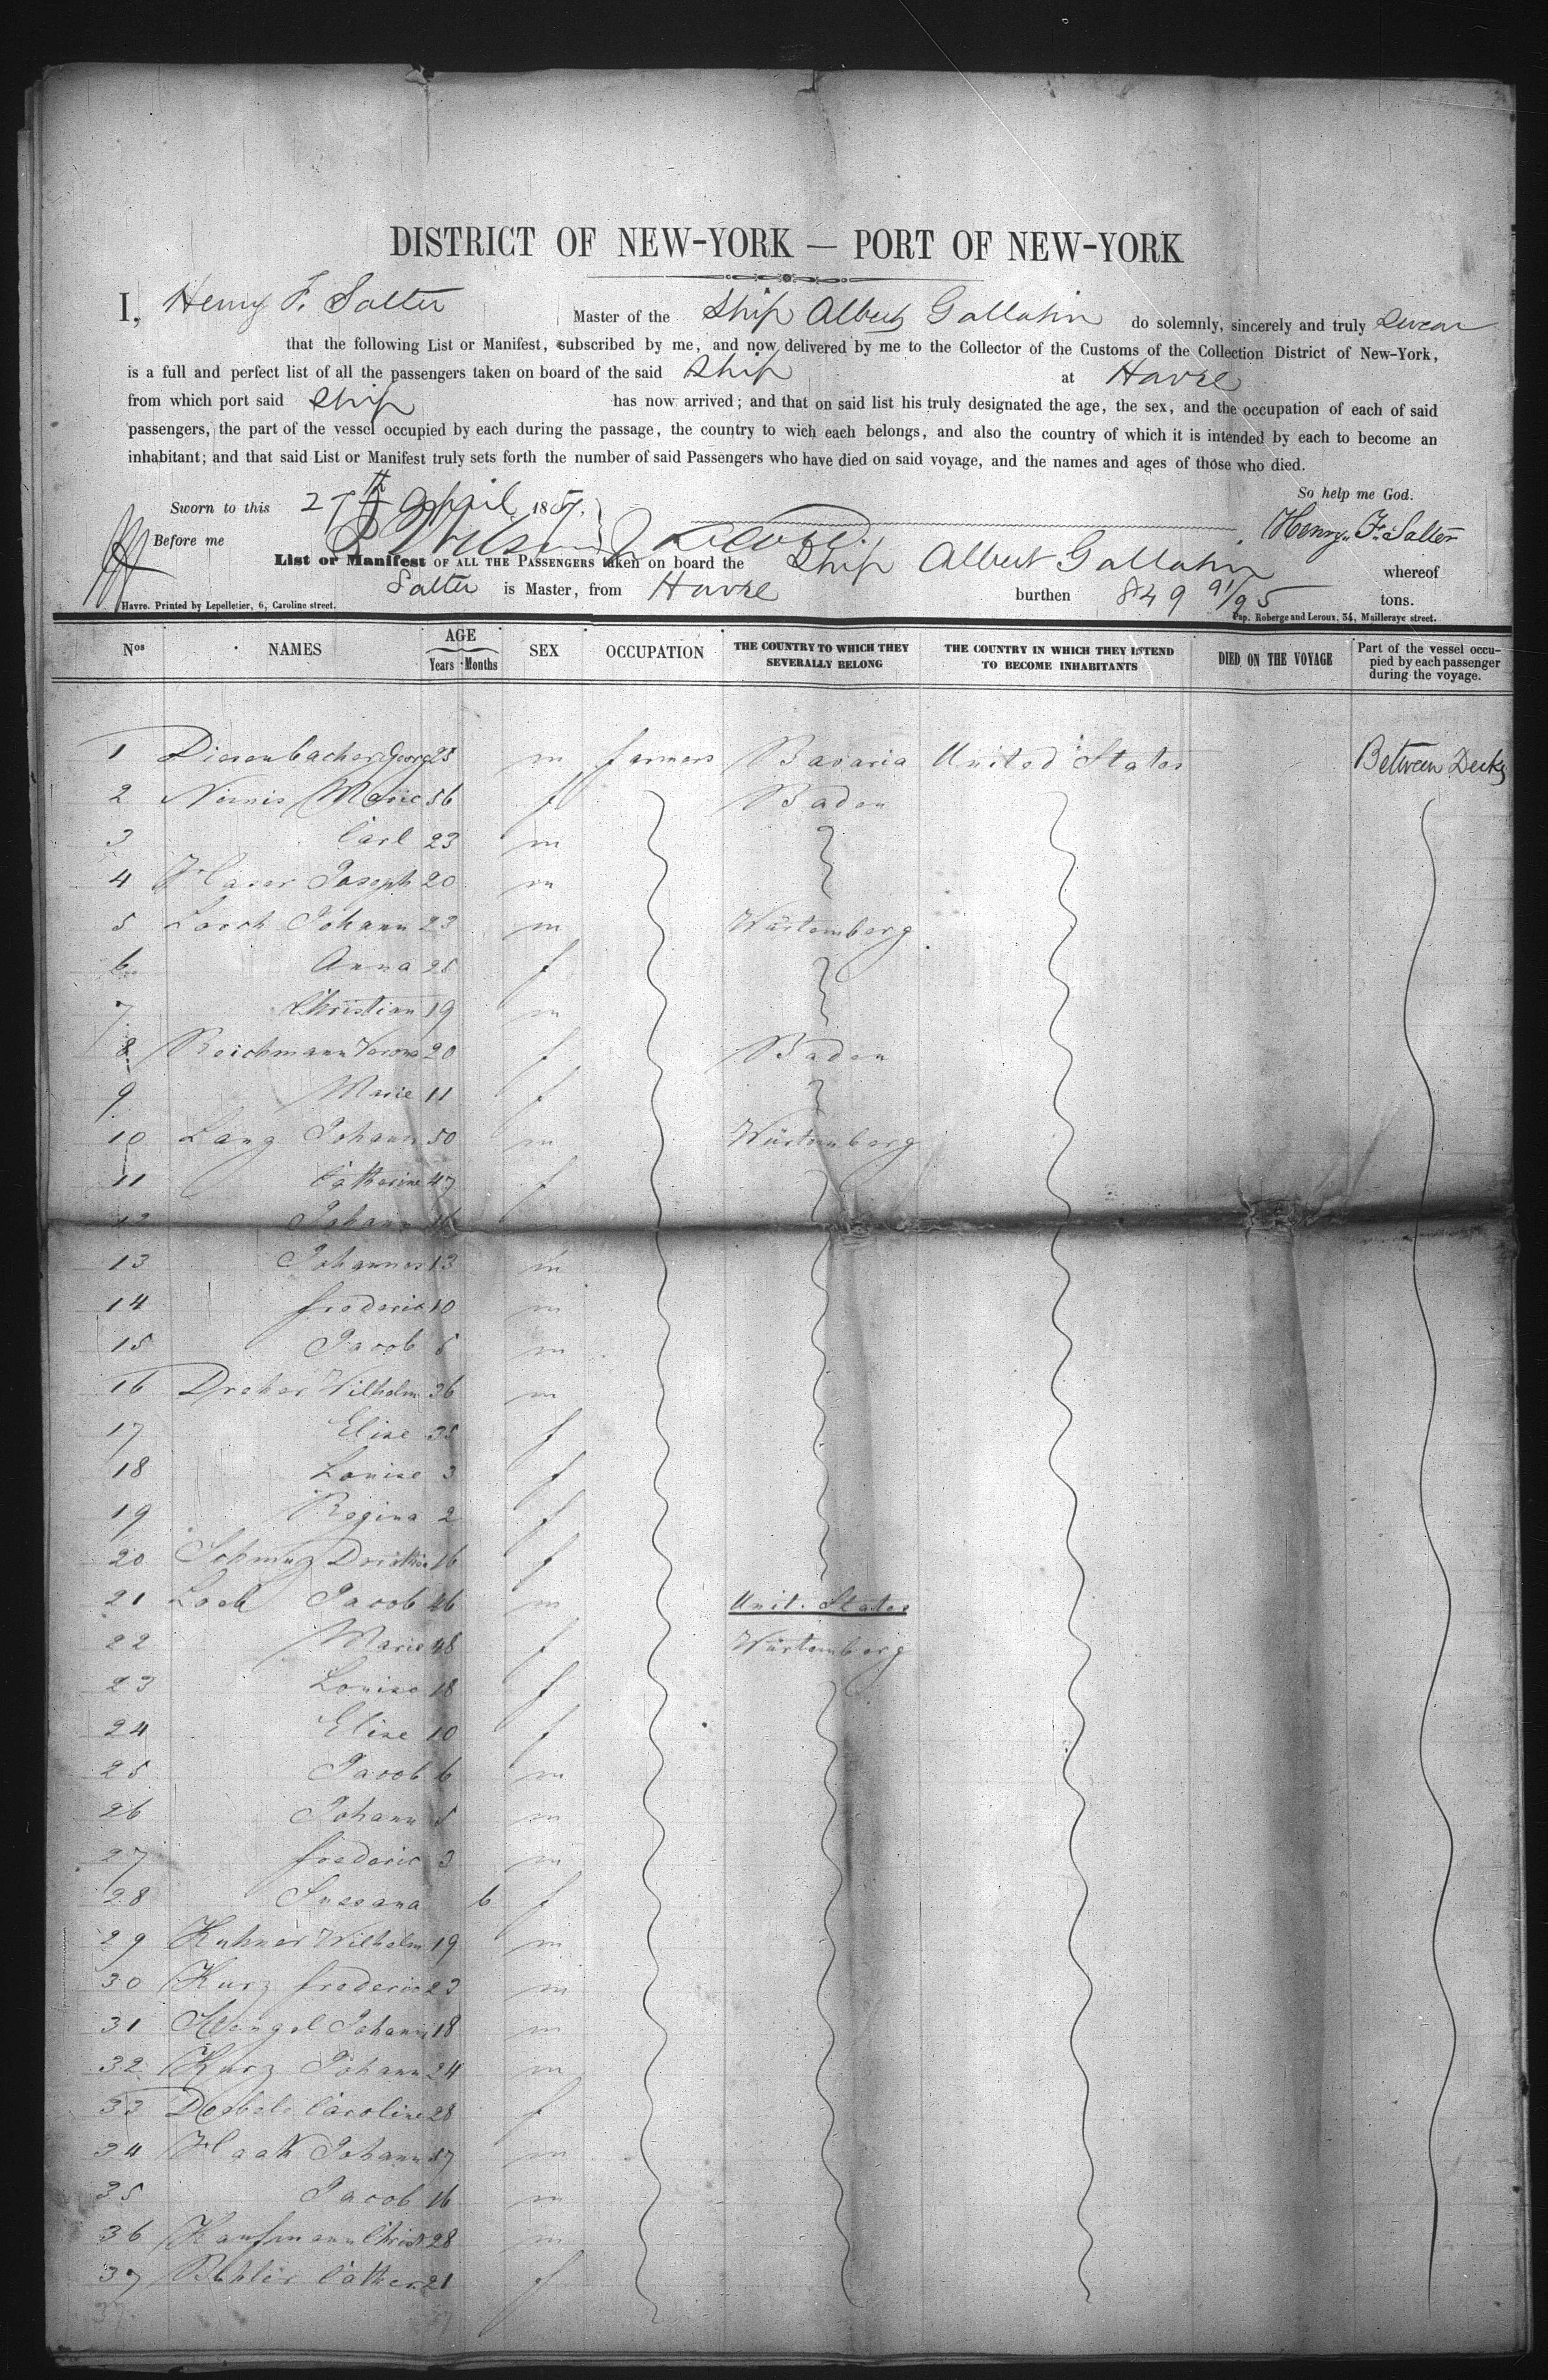 DISTRICT OF NEW-YORK — PORT OF NEW-YORK
I, Henry F. Salter Master of the Ship Albert Gallatin do solemnly, sincerely and truly swear
that the following List or Manifest, subscribed by me, and now delivered by me to the Collector of the Customs of the Collection District of New-York,
is a full and perfect list of all the passengers taken on board of the said Ship at Havre
from which port said Ship has now arrived; and that on said list his truly designated the age, the sex, and the occupation of each of said
passengers, the part of the vessel occupied by each during the passage, the country to wich each belongs, and also the country of which it is intended by each to become an
inhabitant; and that said List or Manifest truly sets forth the number of said Passengers who have died on said voyage, and the names and ages of those who died.
So help me God.
Sworn to this 27th April 1857.
Before me Henry F. Salter
List or Manifest OF ALL THE PASSENGERS taken on board the Ship Albert Gallatin whereof
Salter is Master, from Havre burthen 849 91/95 tons.
Havre. Printed by Lepelletier, 6, Caroline street. Pap. Roberge and Leroux, 34, Mailleraye street.
Nos NAMES AGE Years Months SEX OCCUPATION THE COUNTRY TO WHICH THEY SEVERALLY BELONG THE COUNTRY IN WHICH THEY INTEND TO BECOME INHABITANTS DIED ON THE VOYAGE Part of the vessel occupied by each passenger during the voyage.
1 Diesenbacher Georg 25 m farmers Bavaria United States Between Decks
2 Nemis Marie 56 f Baden
3 Carl 23 m
4 Haser Joseph 20 m
5 Lorch Johann 23 m Würtemberg
6 Anna 25 f
7 Christian 19 m
8 Reichmann Verona 20 f Baden
9 Marie 11 f
10 Lang Johann 50 m Würtemberg
11 Catherine 47 f
12 Johann 16
13 Johannes 13 m
14 frederic 10 m
15 Jacob 5 m
16 Dreher Wilhelm 36 m
17 Elise 35 f
18 Louise 3 f
19 Regina 2 f
20 Schmuz 16 f
21 Loeb Jacob 46 m Unit. States
22 Marie 48 f Würtemberg
23 Louise 18 f
24 Elise 10 f
25 Jacob 6 m
26 Johann 5 m
27 frederic 3 m
28 Sussana 6 f
29 Kuhner Wilhelm 19 m
30 Kurz frederic 23 m
31 Wengel Johann 18 m
32 Kurz Johann 24 m
33 Caroline 28 f
34 Haak Johann 57 m
35 Jacob 16 m
36 Kaufmann Christ 28 m
37 Cather. 21 f
37